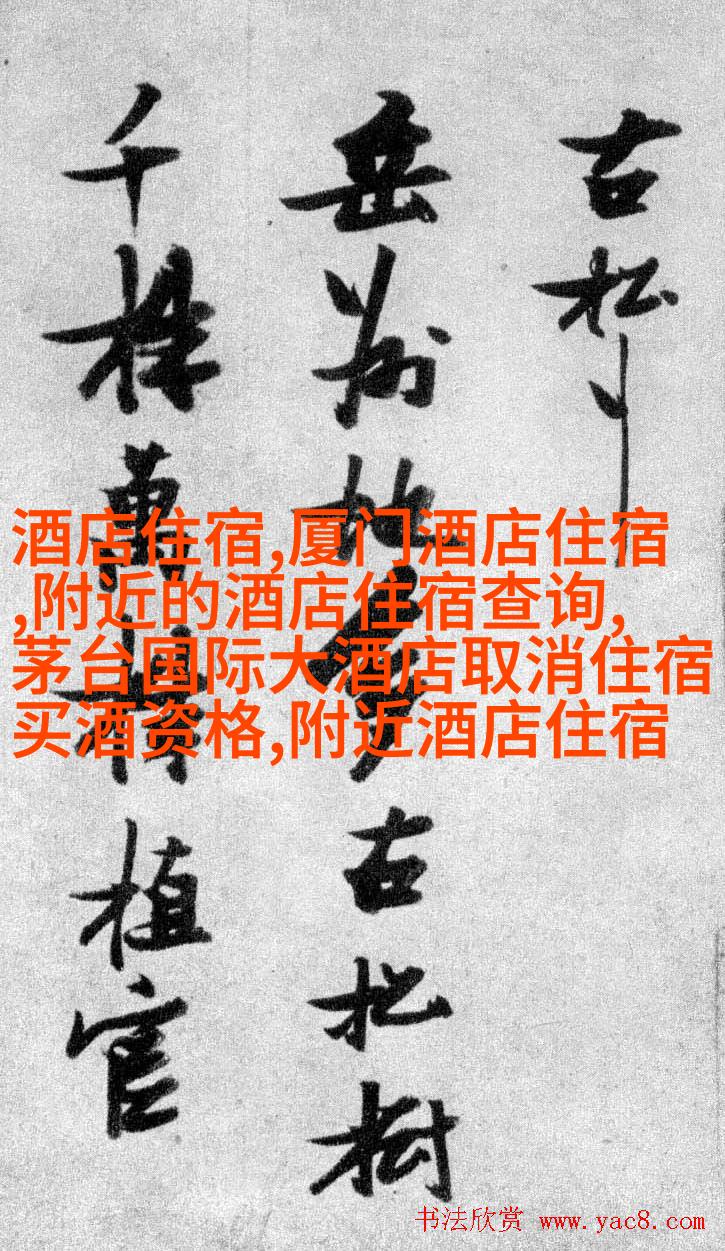 古松
岳州地多古松樹
千株萬株植官
酒店住宿,厦门酒店住宿
,附近的酒店住宿查询,
茅台国际大酒店取消住宿
买酒资格,附近酒店住宿
书法欣赏 www.yac8.com